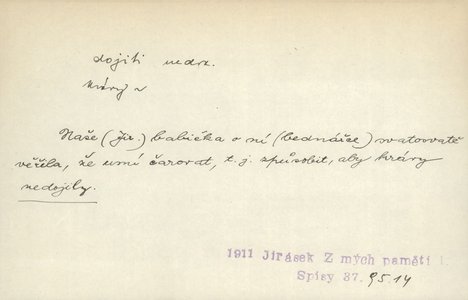 dojiti nedok.
krávy ~
Naše (Jir.) babička o ní (bednářce) svatosvatě
věřila, že umí čarovat, t. j. způsobit, aby krávy
nedojily.
1911 Jirásek Z mých pamětí I.
Spisy 37. 95.14